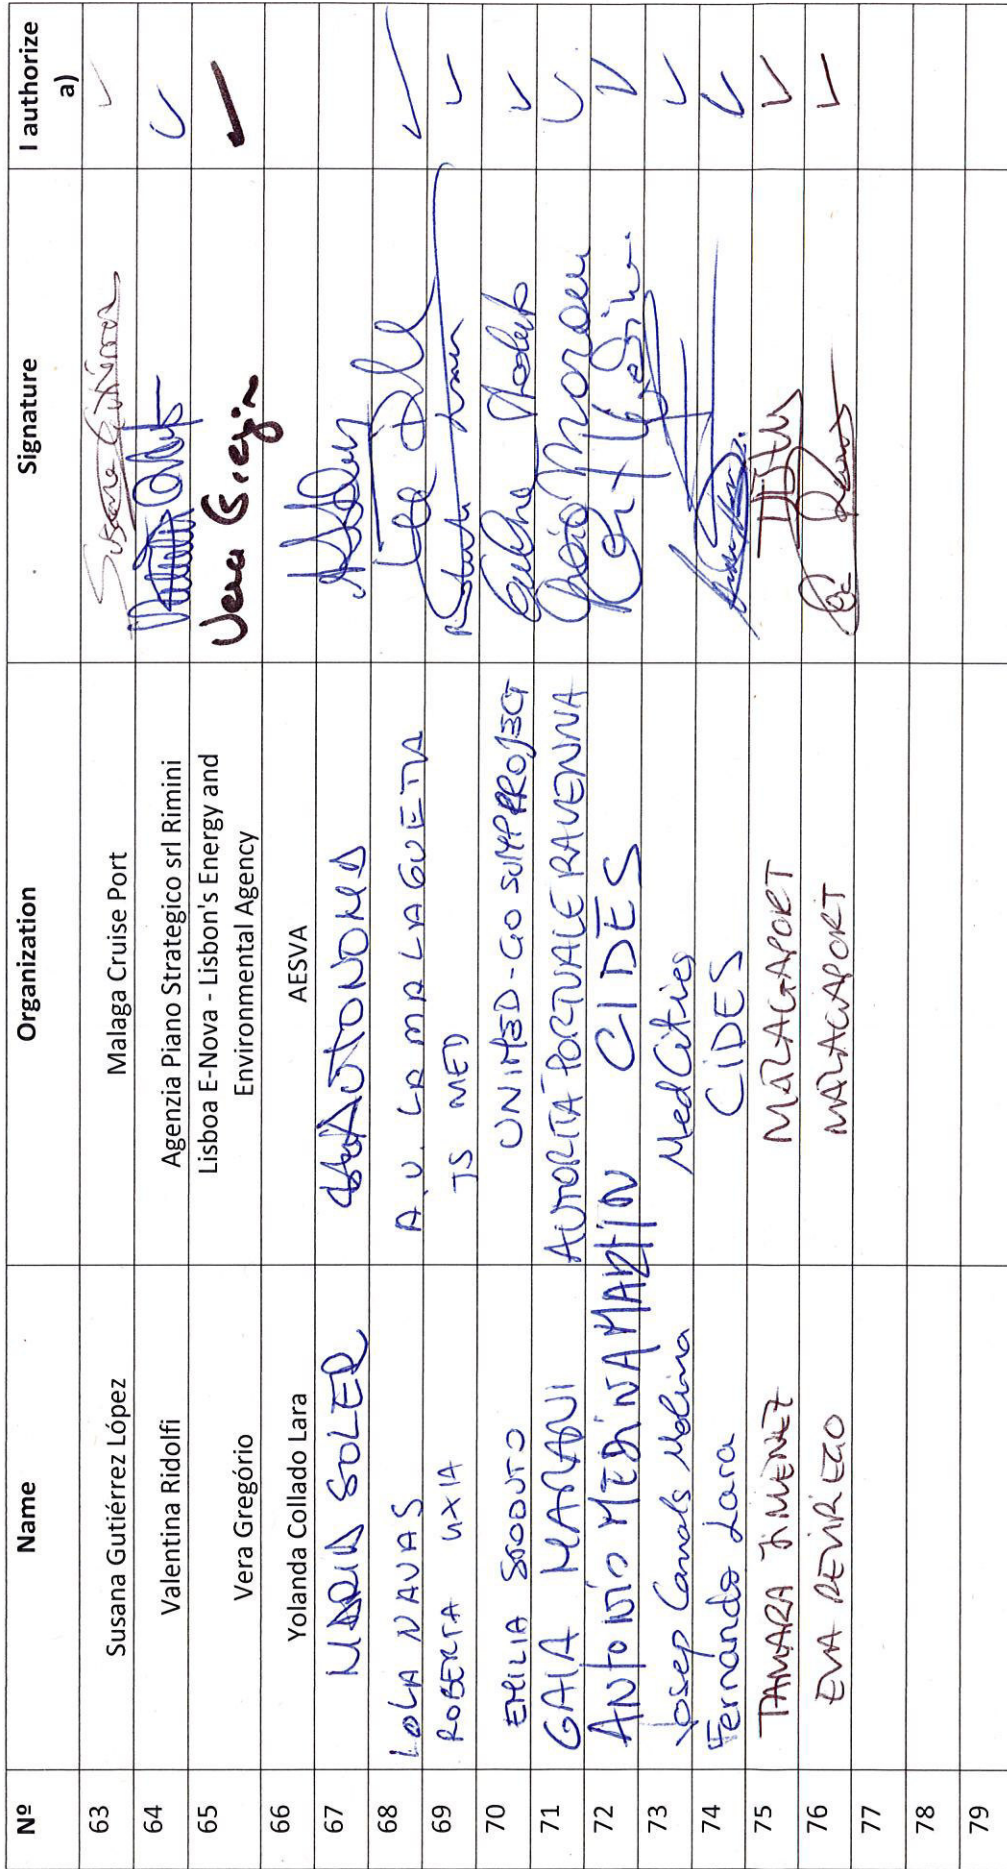 Nº Name Organization Signature I authorize a)
63 Susana Gutiérrez López Malaga Cruise Port Susana Gutiérrez
64 Valentina Ridolfi Agenzia Piano Strategico srl Rimini
65 Vera Gregório Lisboa E-Nova - Lisbon's Energy and Environmental Agency Vera Gregório
66 Yolanda Collado Lara AESVA
67 MARIA SOLER AUTONOMA
68 LOLA NAVAS A.V. LA MALAGUETA
69 ROBERTA JS MED
70 EMILIA UNIMED-GO SUMP PROJECT
71 GAIA MARANI AUTORITÀ PORTUALE RAVENNA
72 ANTONIO MEDINA MARTÍN CIDES
73 Josep Canals Molina MedCities
74 Fernando Lara CIDES
75 TAMARA JIMENEZ MALAGAPORT
76 EVA REVIREGO MALAGAPORT
77
78
79